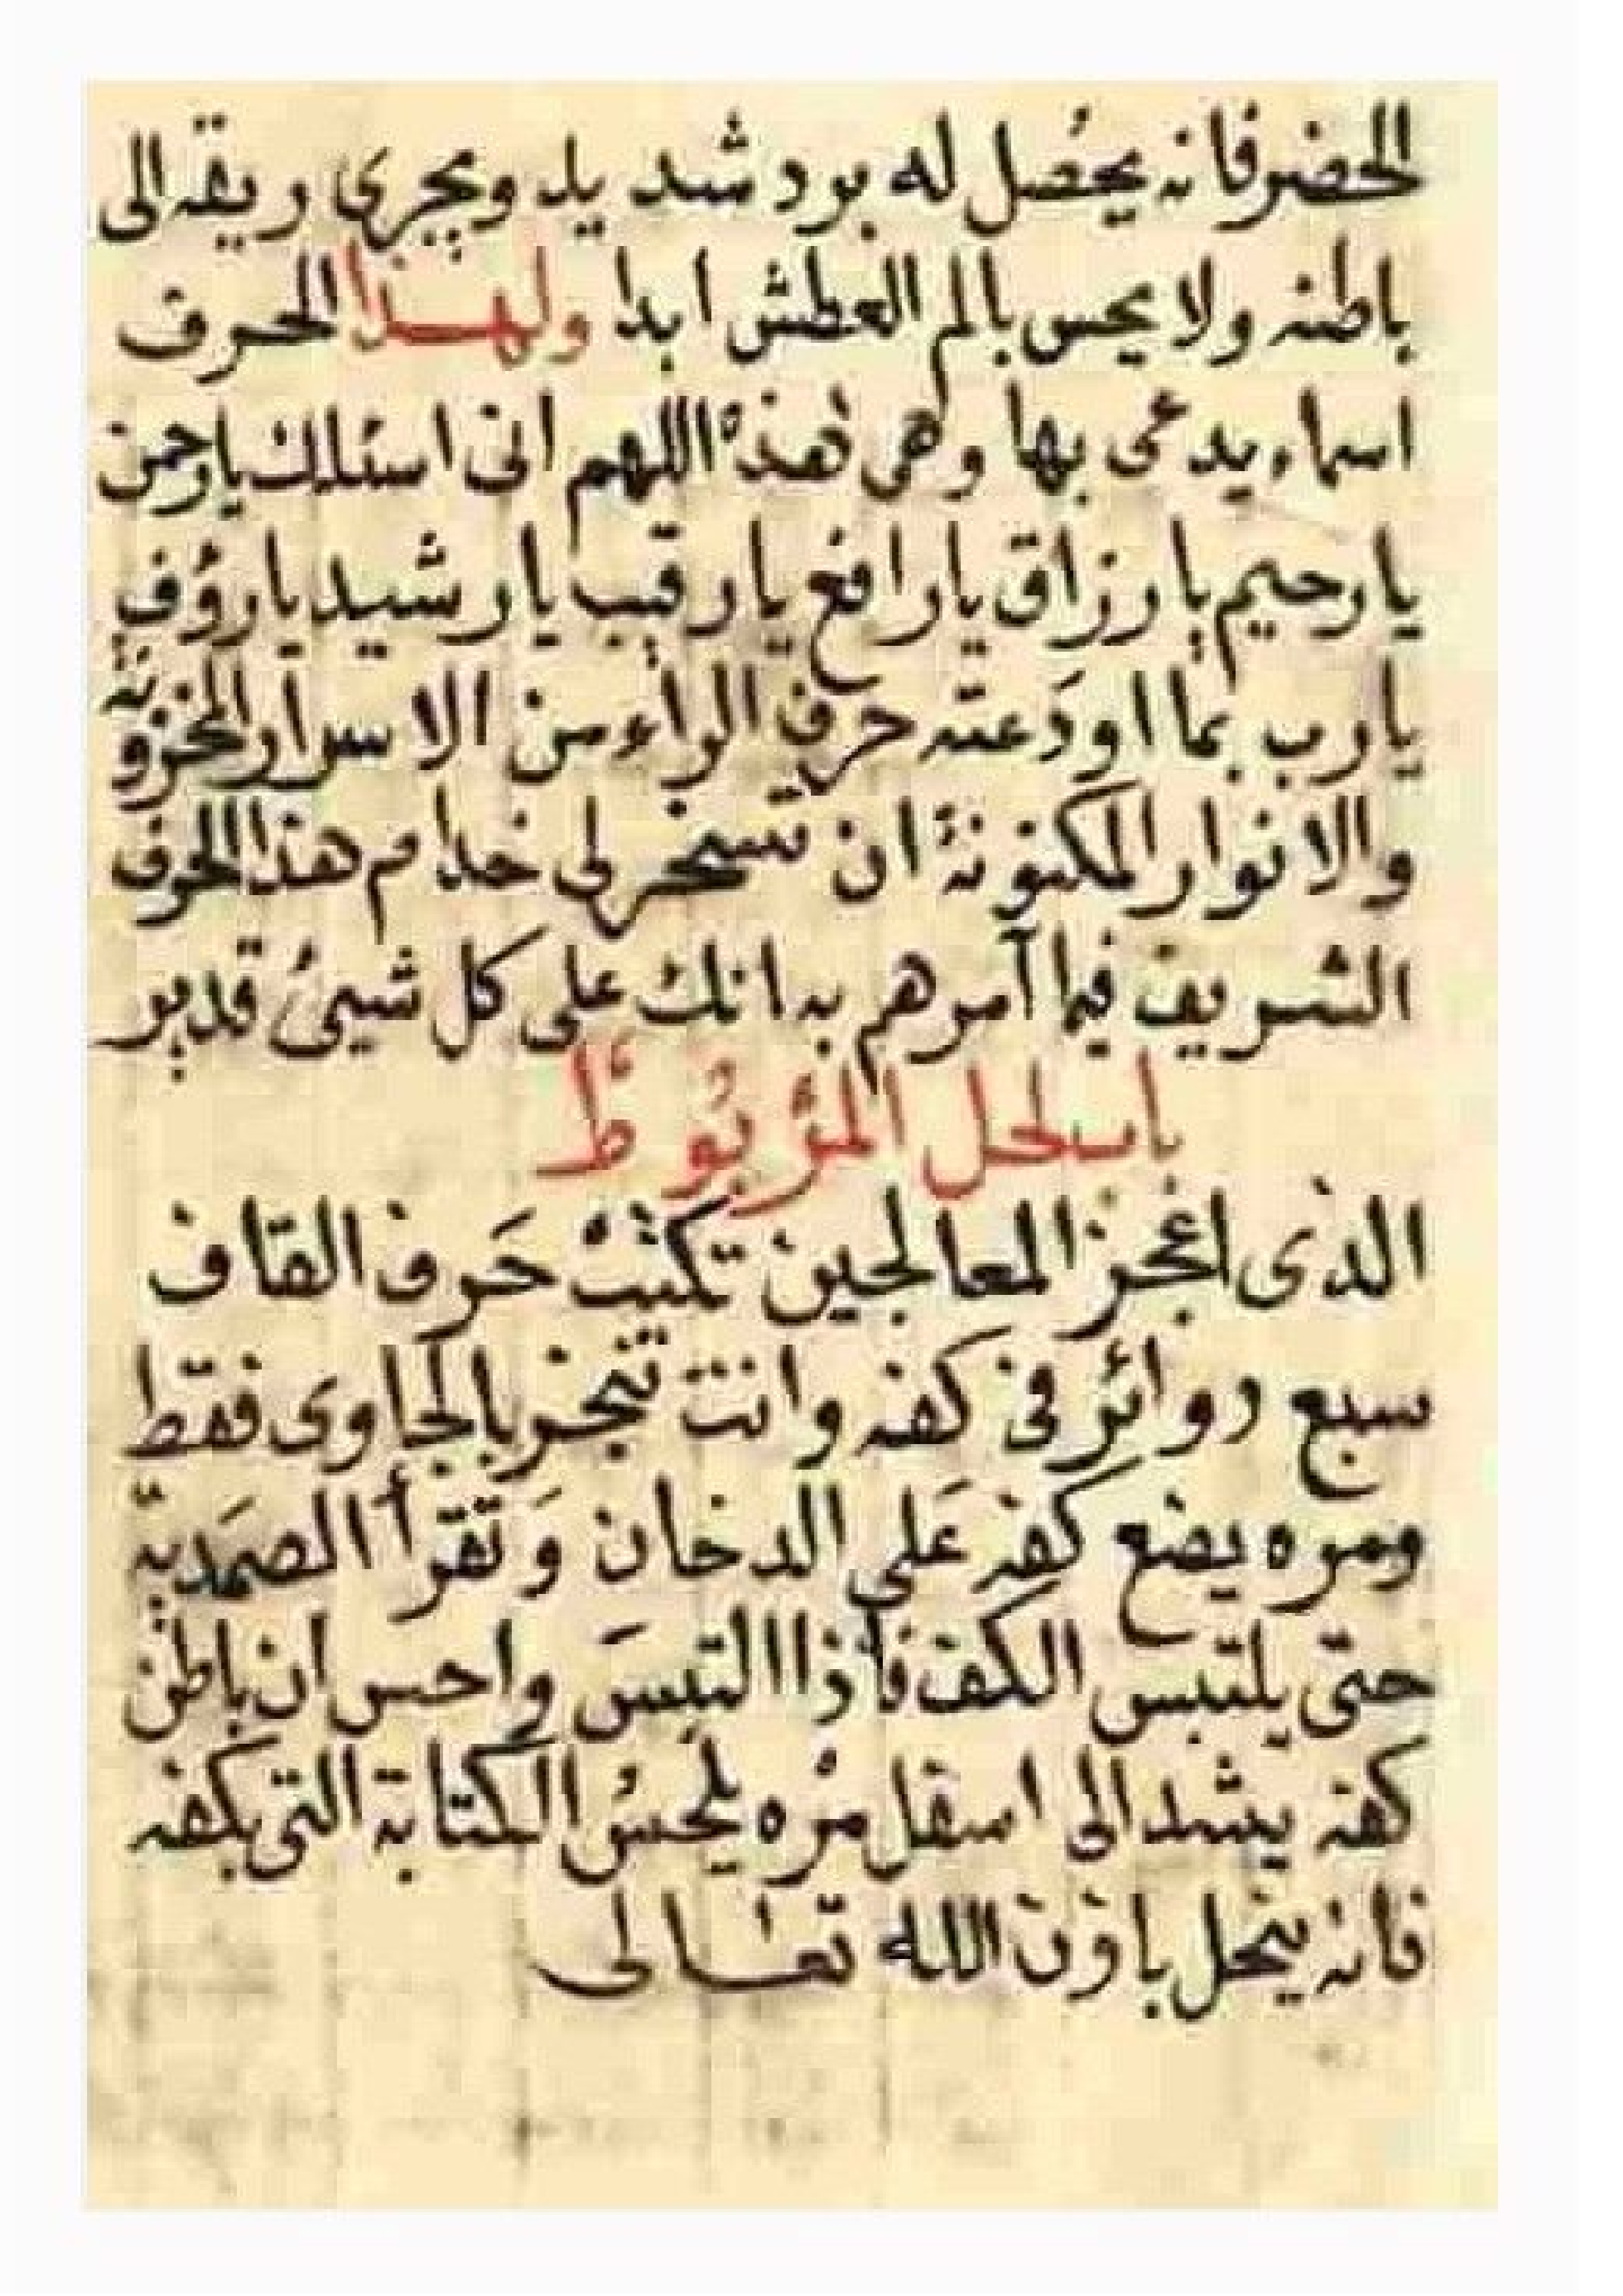 الحضر فانه يحصل له برد شديد ويجرى ريقه الى
باطنه ولا يحس بالم العطش ابدا ولهذا الحرف
اسماء يدعى بها وهى هذه اللهم انى اسئلك يارحمن
يارحيم يارزاق يارافع يارقيب يارشيد يارؤف
يارب بما اودَعته حرف الراء من الاسرار المخزونة
والانوار المكنونة ان تسخر لى خدام هذا الحرف
الشريف فيما آمرهم به انك على كل شيئ قدير
باب لحل المربوط
الذى اعجز المعالجين تكتب حَرف القاف
سبع دوائر فى كفه وانت تبخر بالجاوى فقط
ومره يضع كفه عَلى الدخان وَتقرأ الصمَديه
حتى يلتبس الكف فأذا التبسَ واحس ان باطن
كفه يشد الى اسفل مره يلحسُ الكتابة التى بكفه
فانه ينحل باذن الله تعالى